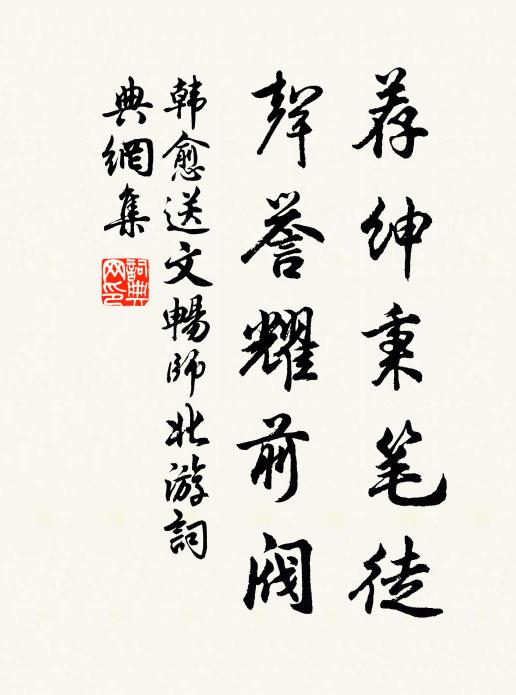 荐绅秉笔徒
聲誉耀前阀
韩愈送文暢師北游詞
典網集
詞典
网印